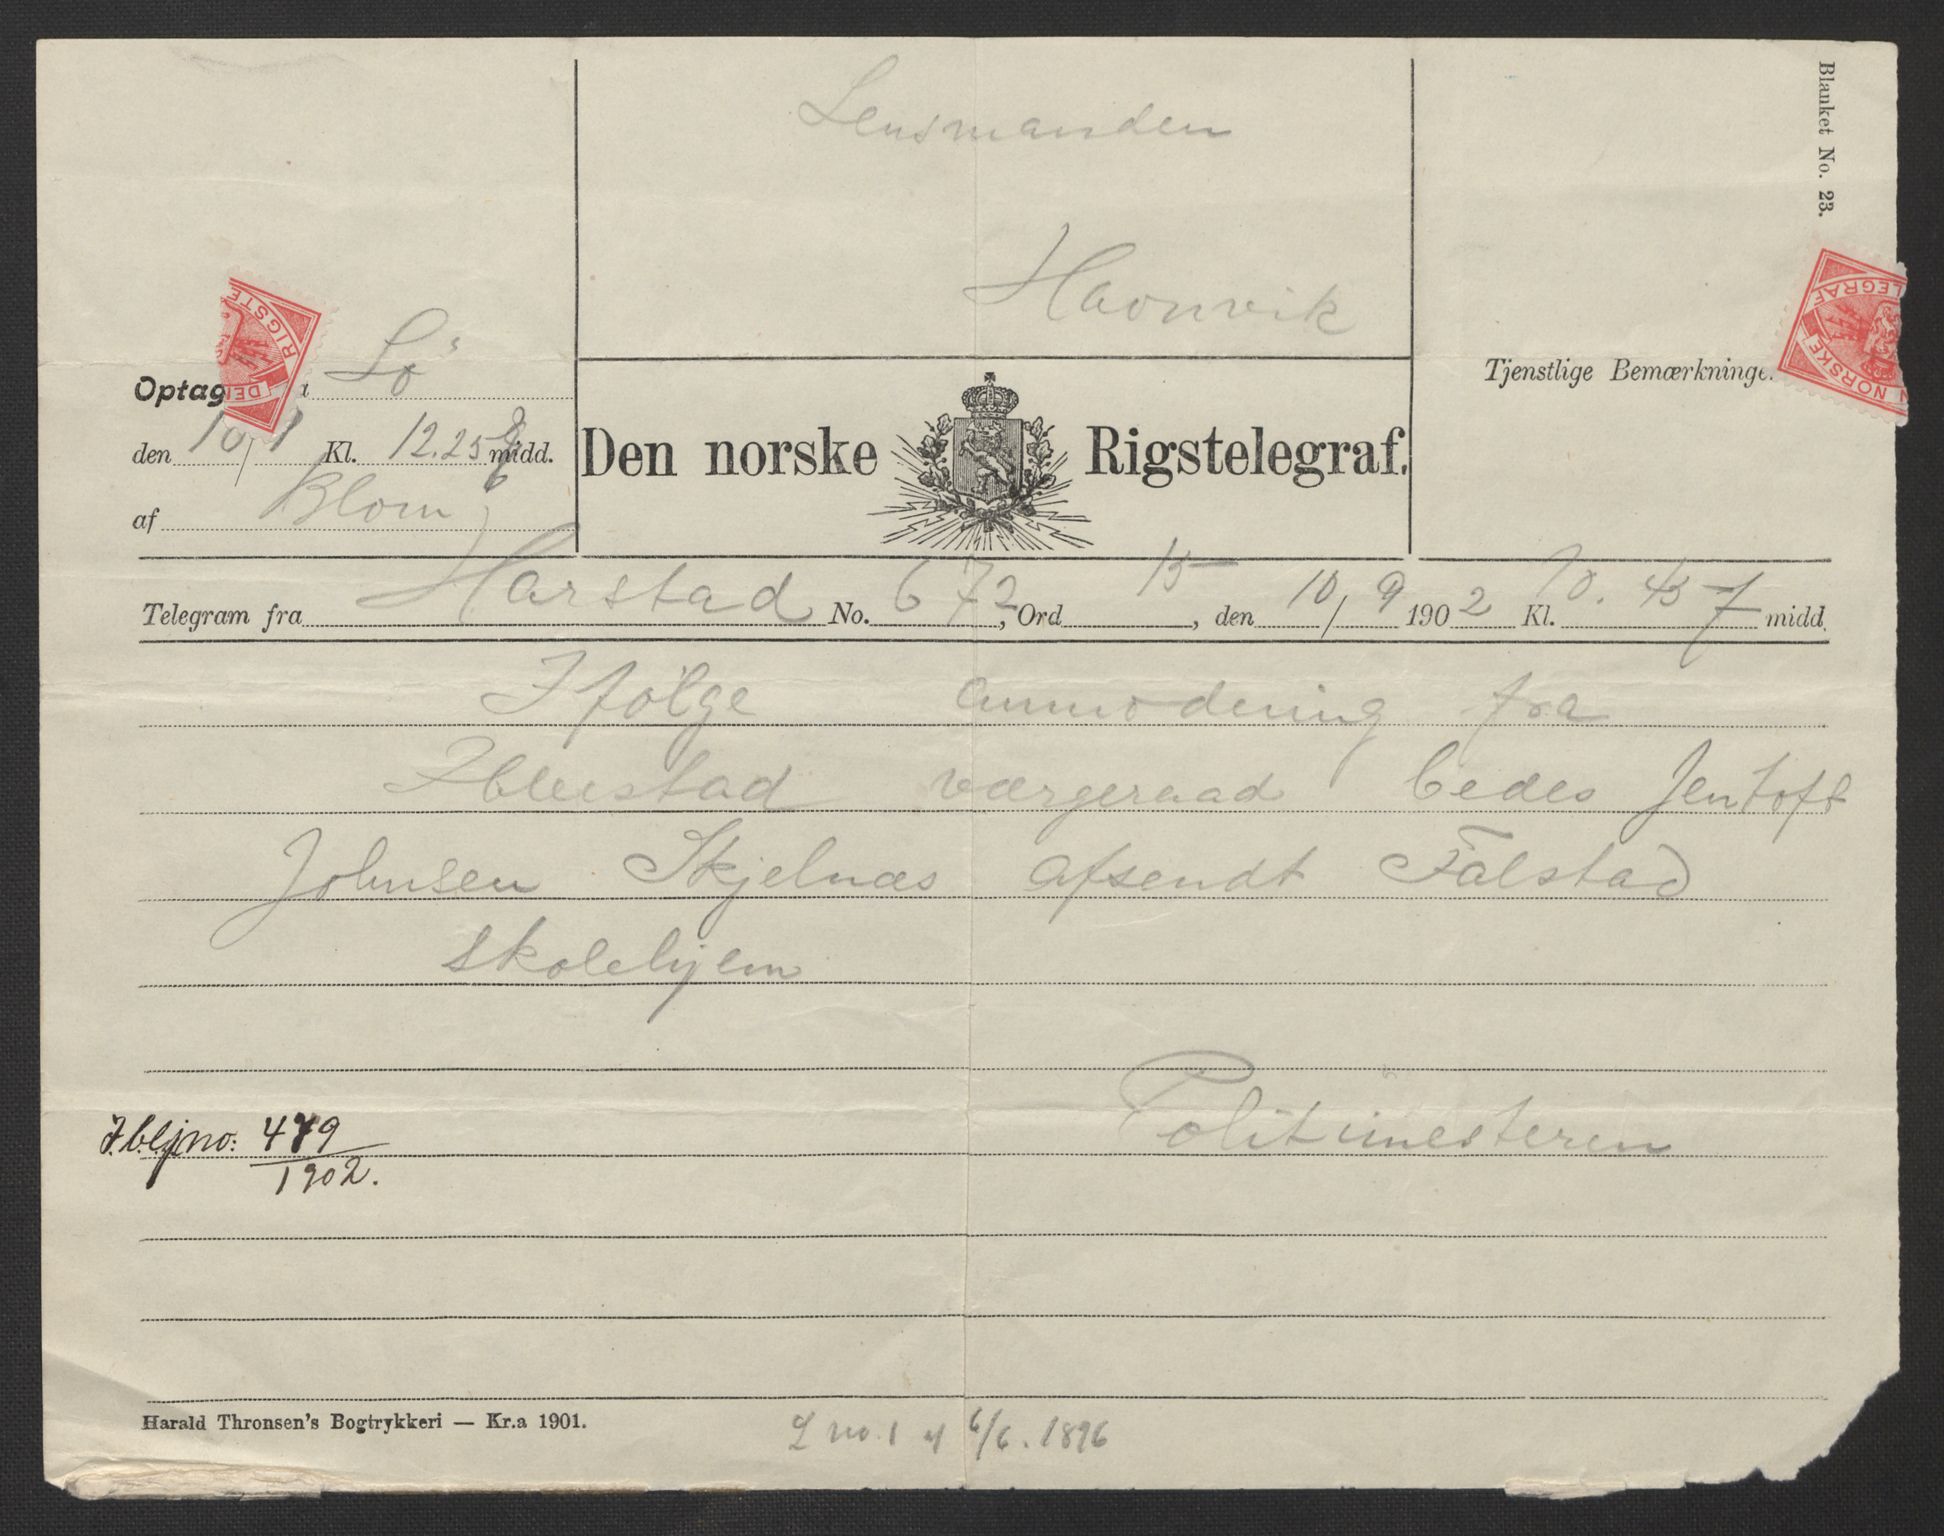 Blanket No. 23.
Lensmanden
Havnvik
Optag
Lö
den 10/ Kl. 12.25 midd.
af Blom
Den norske Rigstelegraf.
Tjenstlige Bemærkninge
RIGSTE
DEN
LEGRAF
NORSKE
Telegram fra Harstad No. 672, Ord 15, den 10/9 1902 Kl. 10.45 F midd.
Ifölge anmodening fra
Ibbestad værgeraad bedes Jentoft
Johnsen Skjelnæs afsendt Falstad
skolehjem
Politimesteren
I.bl.jno: 479
1902.
Harald Thronsen's Bogtrykkeri — Kr.a 1901.
L no. 1 af 6/6. 1896